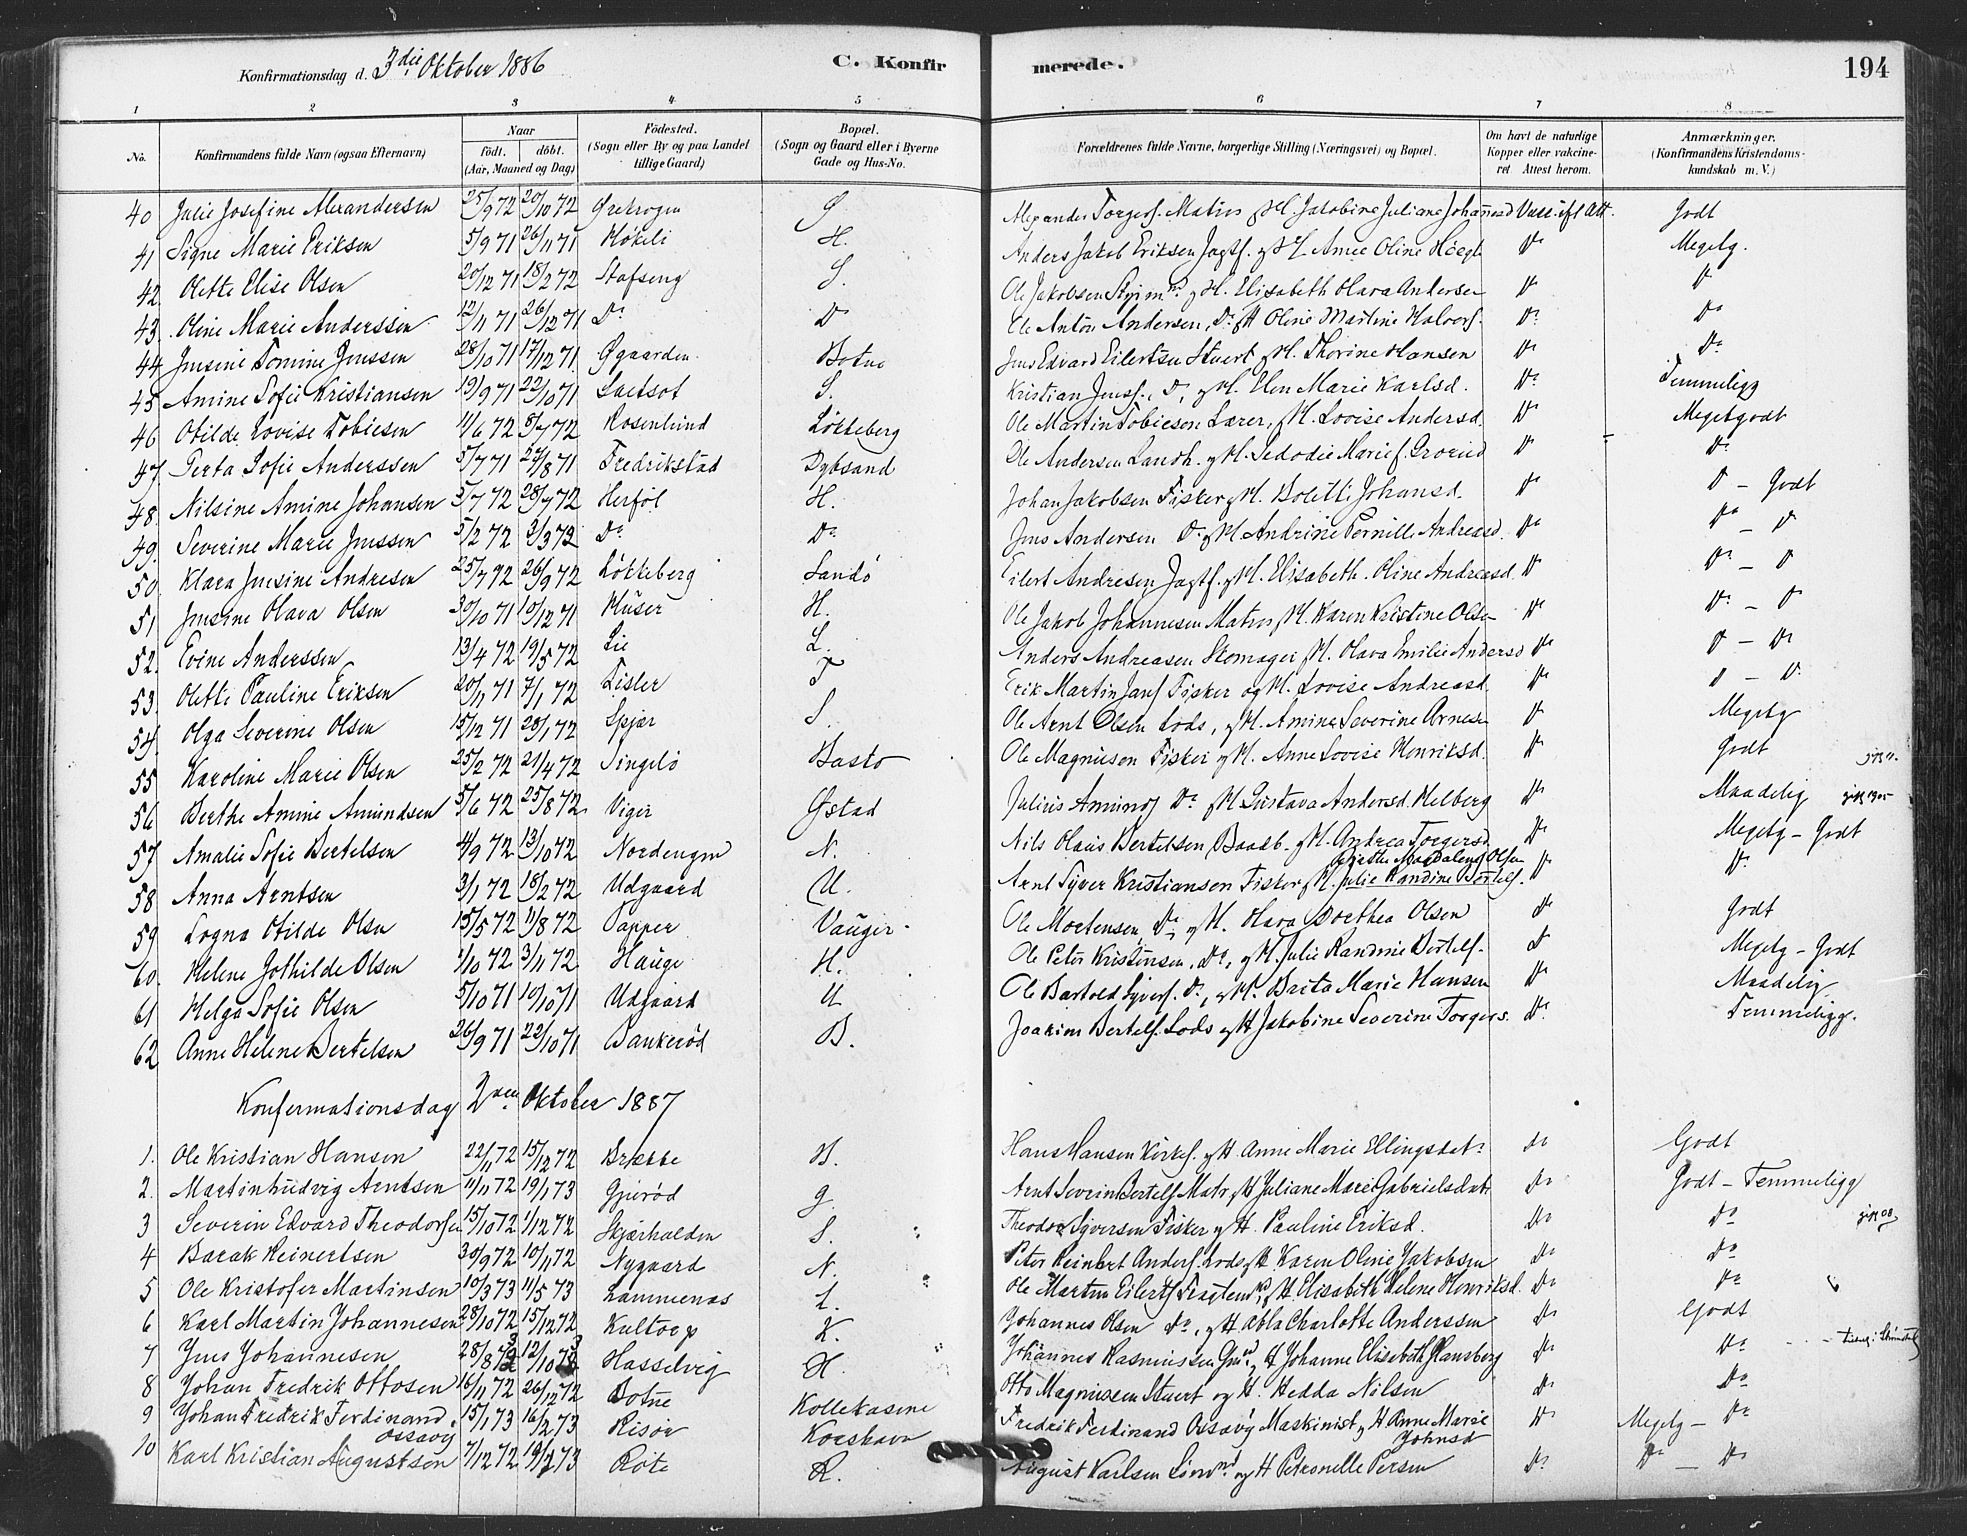 Konfirmationsdag d. 3die Oktober 1886 C. Konfirmerede. 194
1 2 3 4 5 6 7 8
No. Konfirmandens fulde Navn (ogsaa Efternavn) Naar født. døbt. (Aar, Maaned og Dag) Födested. (Sogn eller By og paa Landet tillige Gaard) Bopæl. (Sogn og Gaard eller i Byerne Gade og Hus-No. Forældrenes fulde Navne, borgerlige Stilling (Næringsvei) og Bopæl. Om havt de naturlige Kopper eller vakcineret Attest herom. Anmærkninger. (Konfirmandens Kristendomskundskab m. V.)
40 Julie Josefine Alexandersen 25/9 72 20/10 72 Ørekrogen S. Alexander Torgers. Matros & H. Jakobine Juliane Johannesd Vacc. ifl Att. Godt
41 Signe Marie Eriksen 5/9 71 26/11 71 Køkeli H. Anders Jakob Eriksen Jagtf. & H. Amie Oline Høegh Do Megetg.
42 Olette Elise Olsen 20/12 71 18/2 72 Stafseng S. Ole Jakobsen Styrmd & H. Elisabeth Olava Andersen Do Do
43 Oline Marie Anderssen 12/11 71 26/12 71 Do Do Ole Anton Andersen, Do & H Oline Martine Halvors. Do Do
44 Jensine Tomine Jenssen 28/10 71 17/12 71 Øgaarden Botne Jens Edvard Eilertsen Stuert & H. Thorine Hansen Do Do
45 Amine Sofie Kristiansen 19/9 71 22/10 71 S. Kristian Jenss., D, & H. Elen Marie Karlsd. Do Temmeligg
46 Otilde Lovise Tobiesen 11/6 72 8/7 72 Rosenlund Løkkeberg Ole Martin Tobiesen Lærer, & H. Lovise Andersd. Do Megetgodt
47 Perta Sofie Anderssen 5/7 71 27/8 71 Fredrikstad Dybsand Ole Andersen Landh. & H. Do Do
48 Nilsine Amine Johansen 5/7 72 28/7 72 Herføl H. Johan Jakobsen Fisker & H. Bolette Johansd. Do D – Godt
49 Severine Marie Jenssen 5/2 72 2/3 72 Do Do Jens Andersen Do & H Andrine Pernille Andreasd. Do Do – D
50 Klara Jensine Andresen 25/7 72 26/9 72 Løkkeberg Sandø Eilert Andresen Jagtf. & H. Elisabeth Oline Andreasd. Do Do – D
51 Jensine Olava Olsen 30/10 71 10/12 71 Huser H. Ole Jakob Johannesen Matros, & H. Karen Kristine Olsen Do Do – D
52 Evine Anderssen 13/4 72 19/5 72 Lie L. Anders Andreasen Skomager & H. Olava Emilie Andersd Do D – Do
53 Olette Pauline Eriksen 20/11 71 7/1 72 Tisler T Erik Martin Jans. Fisker og H. Lovise Andreasd. Do D – D.
54 Olga Severine Olsen 15/12 71 28/1 72 Spjær S. Ole Arnt Olsen Lods, & H. Amine Severine Arnesen Do Megetg
55 Karoline Marie Olsen 25/2 72 21/4 72 Singelø Basto Ole Magnussen Fisker & H. Anne Lovise Henriksd. Do Godt
56 Berthe Amine Amundsen 5/6 72 25/8 72 Viger Østad Julius Amunds Do & H. Gustava Andersd. Helberg Do Maadelig gift 1905
57 Amalie Sofie Bertelsen 4/9 72 13/10 72 Nordengen N. Nils Olaus Bertelsen Baadb. & H. Andrea Torgersd. Do Megetg – Godt
58 Anna Arntsen 3/1 72 18/2 72 Udgaard U. Arnt Syver Kristiansen Fisker & H. Julie Randine Bertels. Do Do
Grethe Magdalene Olsen
59 Logna Otilde Olsen 15/5 72 11/8 72 Papper Vauger Ole Mortensen Do, & H. Olava Dorthea Olsen Do Godt
60 Helene Jothilde Olsen 1/10 72 3/11 72 Hauge H. Ole Peter Kristensen, Do, & H. Julie Randine Bertels. D Megetg – Godt
61 Helga Sofie Olsen 5/10 71 10/10 71 Udgaard U Ole Bartold Syvers. D., & H. Brita Marie Hansen Do Maadelig
62 Anne Helene Bertelsen 26/9 71 22/10 71 Bankerød B. Joakim Bertels. Lods & H Jakobine Severine Torgers. Do Temmeligg.
Konfermationsdag 2den Oktober 1887
1. Ole Kristian Hansen 22/11 72 15/12 72 Brække B. Hans Hansen Kirkes. & H. Anne Marie Ellingsdatr Do Godt
2. Martin Ludvig Arntsen 11/11 72 19/1 73 Gjerød G. Arnt Severin Bertels Matr. & H Juliane Marie Gabrielsdatr Do Godt – Temmeligg
3 Severin Edvard Theodorsen 15/10 72 1/12 72 Skjærhalden S. Theodor Syversen Fisker & H. Pauline Eriksd. Do Do gift 08
4 Barak Reinertsen 30/9 72 10/11 72 Nygaard N. Peter Reinert Anders. Lods, & H. Karen Oline Jakobsen Do Do
5 Ole Kristofer Martinsen 10/3 73 11/5 73 Lammenas L. Ole Martin Eilerts Fragtemd, & H Elisabeth Helene Henriksd. Do Do
6 Karl Martin Johannesen 28/10 72 15/12 72 Kultorp K. Johannes Olsen Do, & H Abla Charlotte Anderssen Do Godt
7 Jens Johannesen 28/8 73 12/10 73 Hasselvig H. Johannes Rasmussen & H Johanne Elisebeth Hansberg Do Do
8 Johan Fredrik Ottosen 16/11 72 26/12 72 Botne Kollekasene Otto Magnussen Stuert og H. Hedda Nilsen Do Do
9 Johan Fredrik Ferdinand Ossavy 15/1 73 16/2 73 Risør Korshavn Fredrik Ferdinand Ossavy Maskinist, & H Anne Marie Johnsd Do Megetg – Do
10 Karl Kristian Augustsen 7/12 72 19/1 73 Røte R. August Karlsen Sømd og H Petronelle Persen Do Do – Do